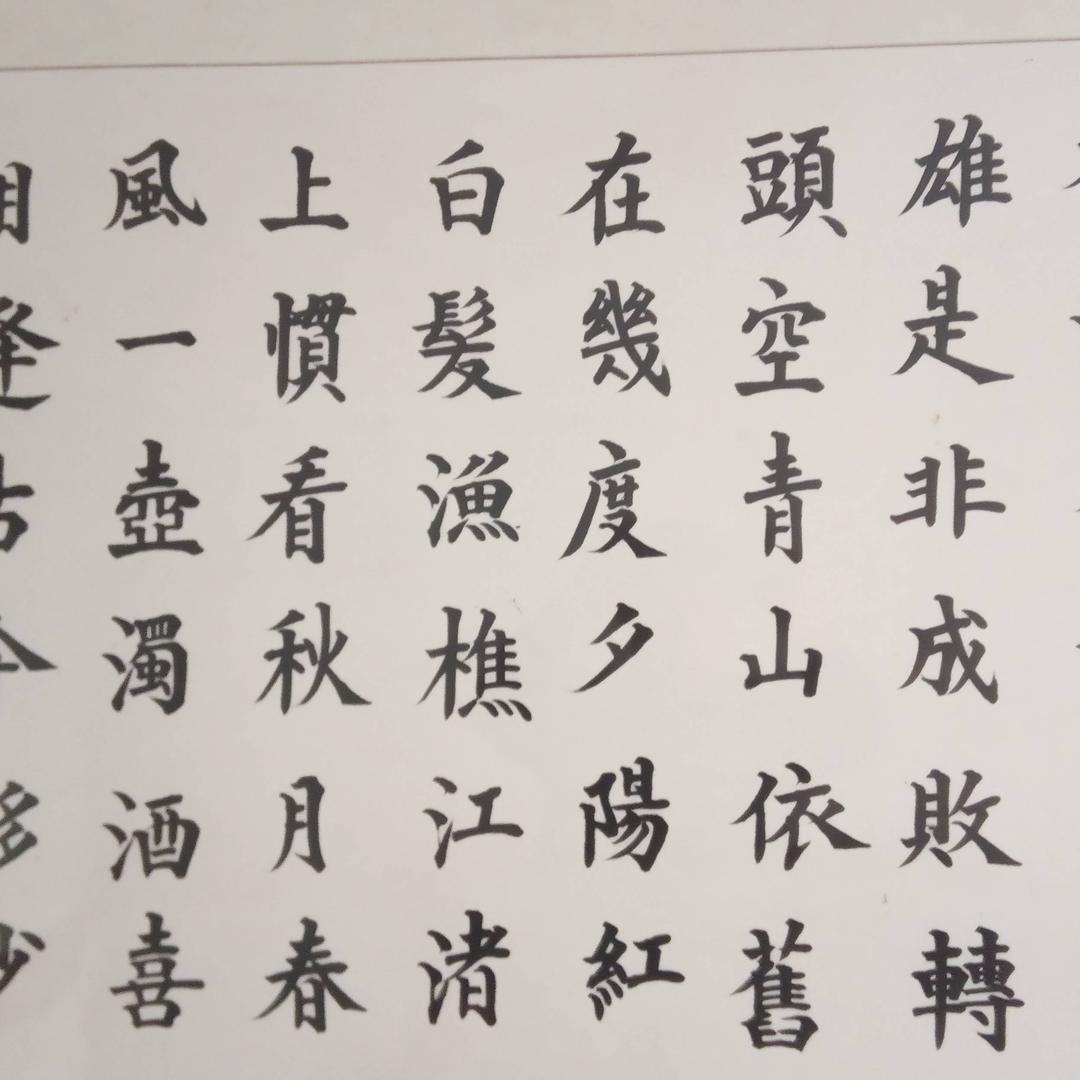 雄是非成敗轉
頭空青山依舊
在幾度夕陽紅
白髮漁樵江渚
上慣看秋月春
風一壺濁酒喜
相逢古今多少